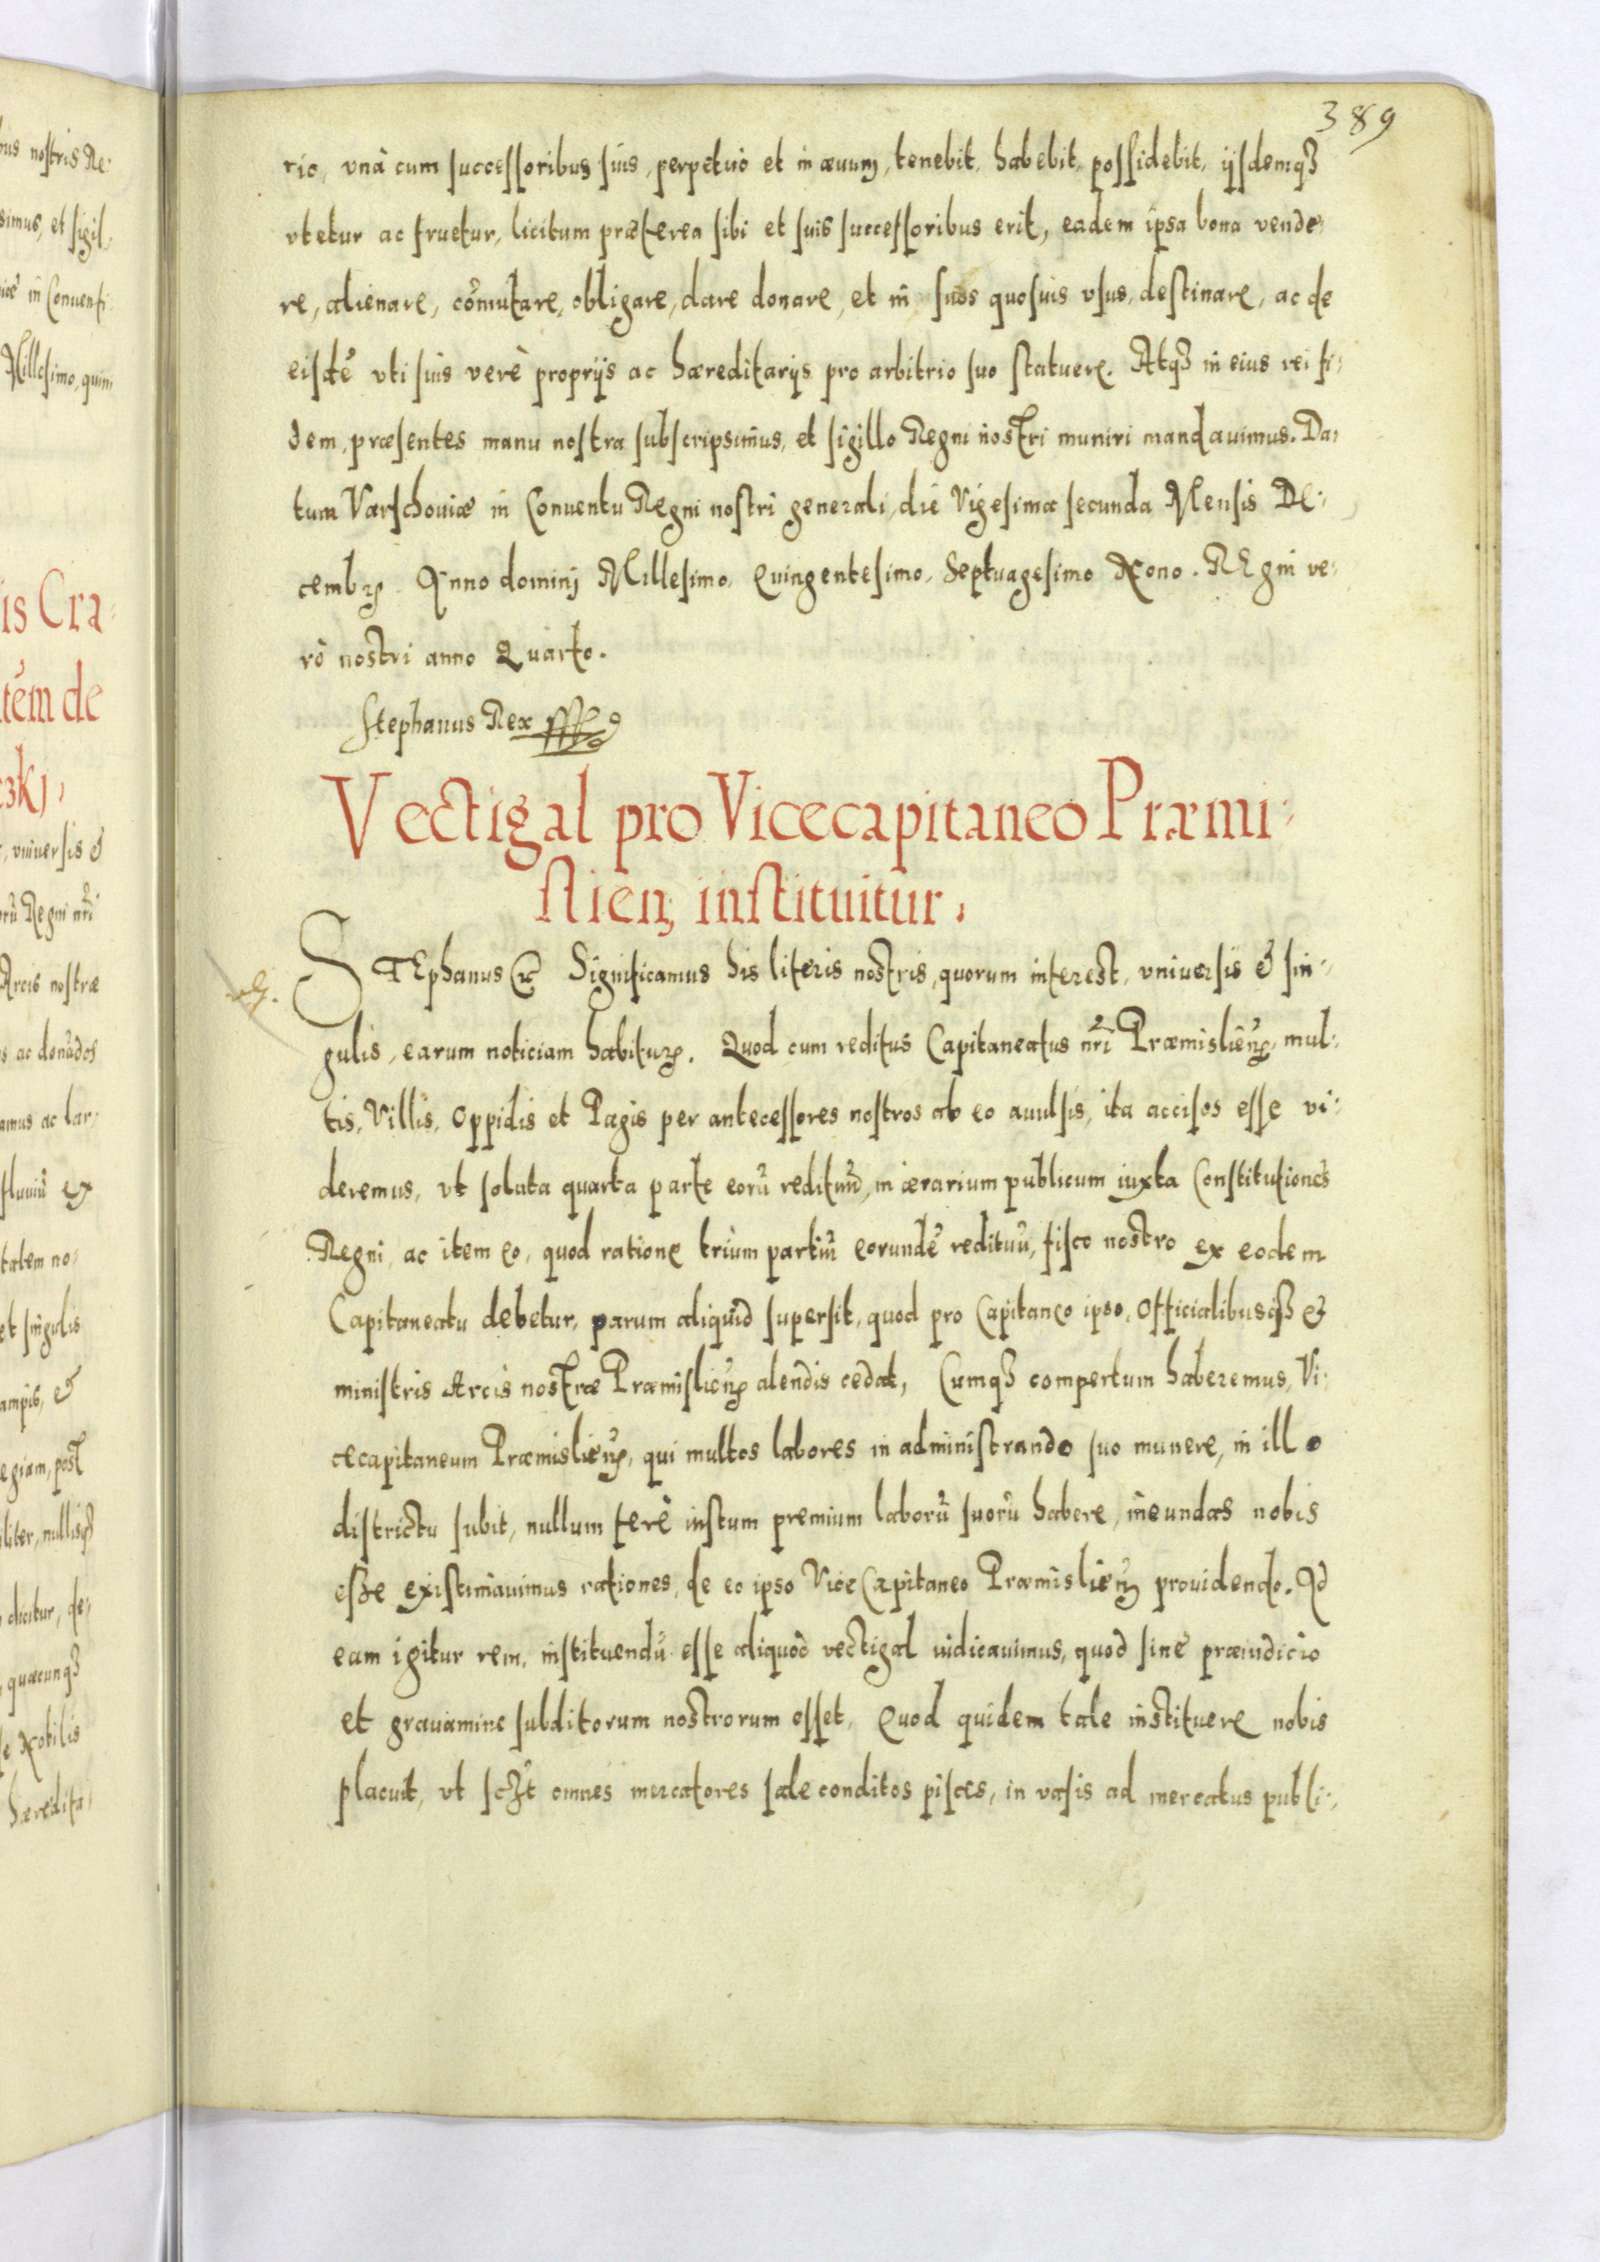 389
ric, vnà cum successoribus suis, perpetuò et in æuum, tenebit, habebit, possidebit, ijsdemq₃
vtetur ac fruetur, licitum præterea sibi et suis successoribus erit, eadem ipsa bona vende-
re, alienare, com̃utare, obligare, dare donare, et in suos quosuis vsus, destinare, ac de
eisdẽ vti suis verè proprijs ac hæreditarijs pro arbitrio suo statuere. Atq₃ in eius rei fi-
dem, præsentes manu nostra subscripsimus, et sigillo Regni nostri muniri mandauimus. Da-
tum Varschouiæ in Conuentu Regni nostri generali, die Vigesima secunda Mensis De-
cembrꝭ. Anno dominj Millesimo, Quingentesimo, Septuagesimo Nono. REgni ve-
rò nostri anno Quarto.
Stephanus Rex
Vectigal pro Vicecapitaneo Præmi-
slien, instituitur.
STEphanus &c Significamus his literis nostris, quorum interest, vniuersis & sin-
gulis, earum noticiam habiturꝭ. Quod cum reditus Capitaneatus nr̃i Præmislień, mul-
tis, Villis, Oppidis et Pagis per antecessores nostros ab eo auulsis, ita accisos esse vi-
deremus, vt soluta quarta parte eorũ redituũ, in ærarium publicum iuxta Constitutiones
Regni, ac item eo, quod ratione trium partiũ eorundẽ redituũ, fisco nostro ex eodem
Capitaneatu debetur, parum aliquid supersit, quod pro Capitaneo ipso, Officialibusq₃ &
ministris Arcis nostræ Præmislień alendis cedat, Cumq₃ compertum haberemus, Vi-
cecapitaneum Præmislień, qui multos labores in administrando suo munere, in illo
districtu subit, nullum ferè iustum premium laborũ suorũ habere, ineundas nobis
esse existimauimus rationes, de eo ipso Vice Capitaneo Præmislień prouidendo. Ad
eam igitur rem, instituendũ esse aliquod vectigal iudicauimus, quod sine præiudicio
et grauamine subditorum nostrorum esset, Quod quidem tale instituere nobis
placuit, vt scꝫt omnes mercatores sale conditos pisces, in vasis ad mercatus publi-